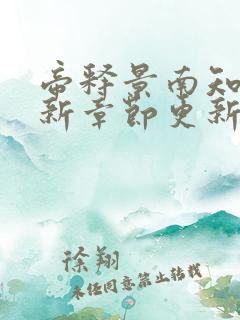 帝释景南知
新章节更新
徐翔
未经同意禁止转载